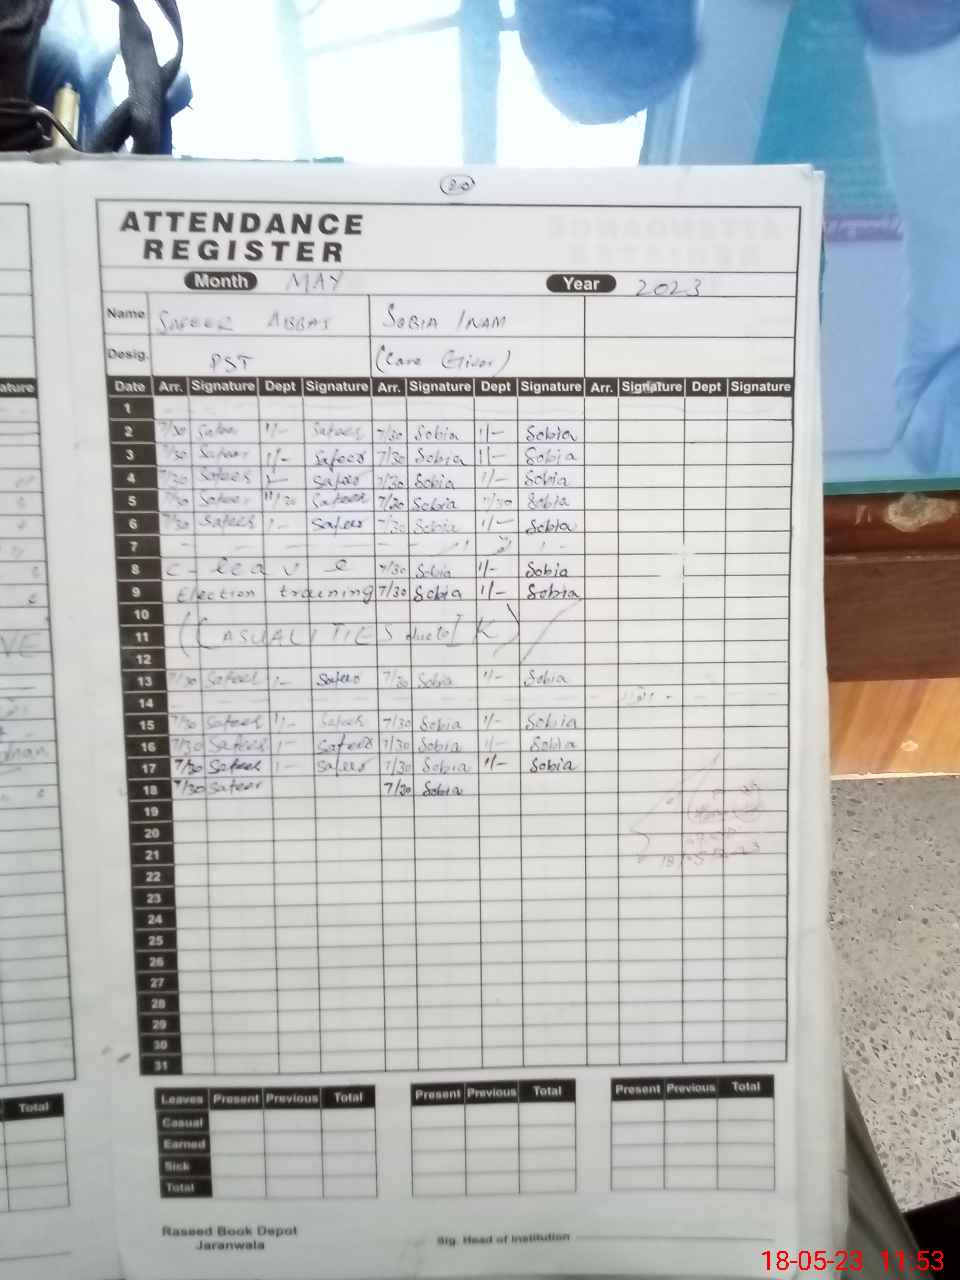 20
ATTENDANCE
REGISTER
Month MAY Year 2023
Name SAFEER ABBAS SOBIA INAM
Desig. PST (Care Giver)
ature Date Arr. Signature Dept Signature Arr. Signature Dept Signature Arr. Signature Dept Signature
1
2 7/30 Safeer 1/- Safeer 7/30 Sobia 1/- Sobia
3 7/30 Safeer 1/- Safeer 7/30 Sobia 1/- Sobia
4 7/30 Safeer 1/- Safeer 7/30 Sobia 1/- Sobia
5 7/30 Safeer 11/30 Safeer 7/30 Sobia 11/30 Sobia
6 7/30 Safeer 1/- Safeer 7/30 Sobia 1/- Sobia
7
8 c-leave 7/30 Sobia 1/- Sobia
9 Election training 7/30 Sobia 1/- Sobia
10
11 (CASUALITIES due to IK)
12
13 7/30 Safeer 1- Safeer 7/30 Sobia 1/- Sobia
14
15 7/30 Safeer 1/- Safeer 7/30 Sobia 1/- Sobia
16 7/30 Safeer 1- Safeer 7/30 Sobia 1/- Sobia
17 7/30 Safeer 1- Safeer 7/30 Sobia 1/- Sobia
18 7/30 Safeer 7/30 Sobia
19
20
21 18/05/2023
22
23
24
25
26
27
28
29
30
31
Total Leaves Present Previous Total Present Previous Total Present Previous Total
Casual
Earned
Sick
Total
Raseed Book Depot
Jaranwala
Sig. Head of Institution
18-05-23 11:53